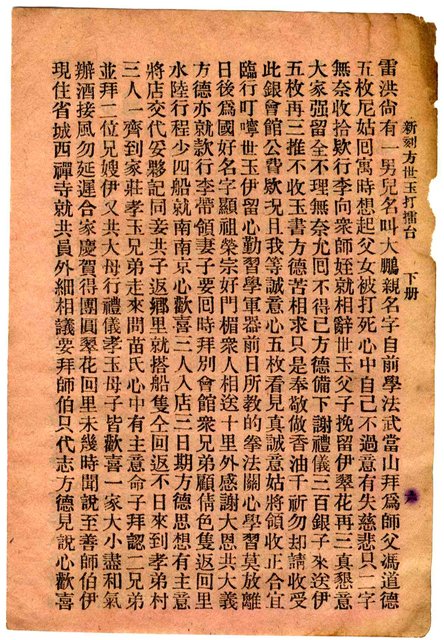 新刻方世玉打擂台　下册
雷洪尚有一男兒名叫大鵬親名字自前學法武當山拜爲師父馮道德
五枚尼姑囘寓時想起父女被打死心中自己不過意有失慈悲只二字
無奈收拾欵行李向衆師姪就相辭世玉父子挽留伊翠花再三真懇意
大家强留全不理無奈尤囘不得已方德備下謝禮儀三百銀子來送伊
五枚再三推不收玉書方德苦相求只是奉敬做香油千祈勿却請收受
此銀會館公費欵况且我等誠意心五枚看見真誠意姑將領收正合宜
臨行叮嚀世玉伊留心勤習學軍器前日所教的拳法關心學習莫放離
日後爲國好名字顯祖榮宗好門楣衆人相送十里外感謝大恩共大義
方德亦就欵行李帶領妻子要囘時拜別會館衆兄弟顧倩色隻返回里
水陸行程少四船就南南京心歡喜三人入店三日期方德思想有主意
將店交代安夥記同妾共子返鄉里就搭船隻仝回返不日來到孝弟村
三人一齊到家莊孝玉兄弟走來問苗氏心中有主意命子拜認二兄弟
並拜二位兄嫂伊又共大母行禮儀孝玉母子皆歡喜一家大小盡和氣
辦酒接風勿延遲合家慶賀得團圓翠花回里未幾時聞說至善師伯伊
現住省城西禪寺就共員外細相議要拜師伯只代志方德見說心歡喜